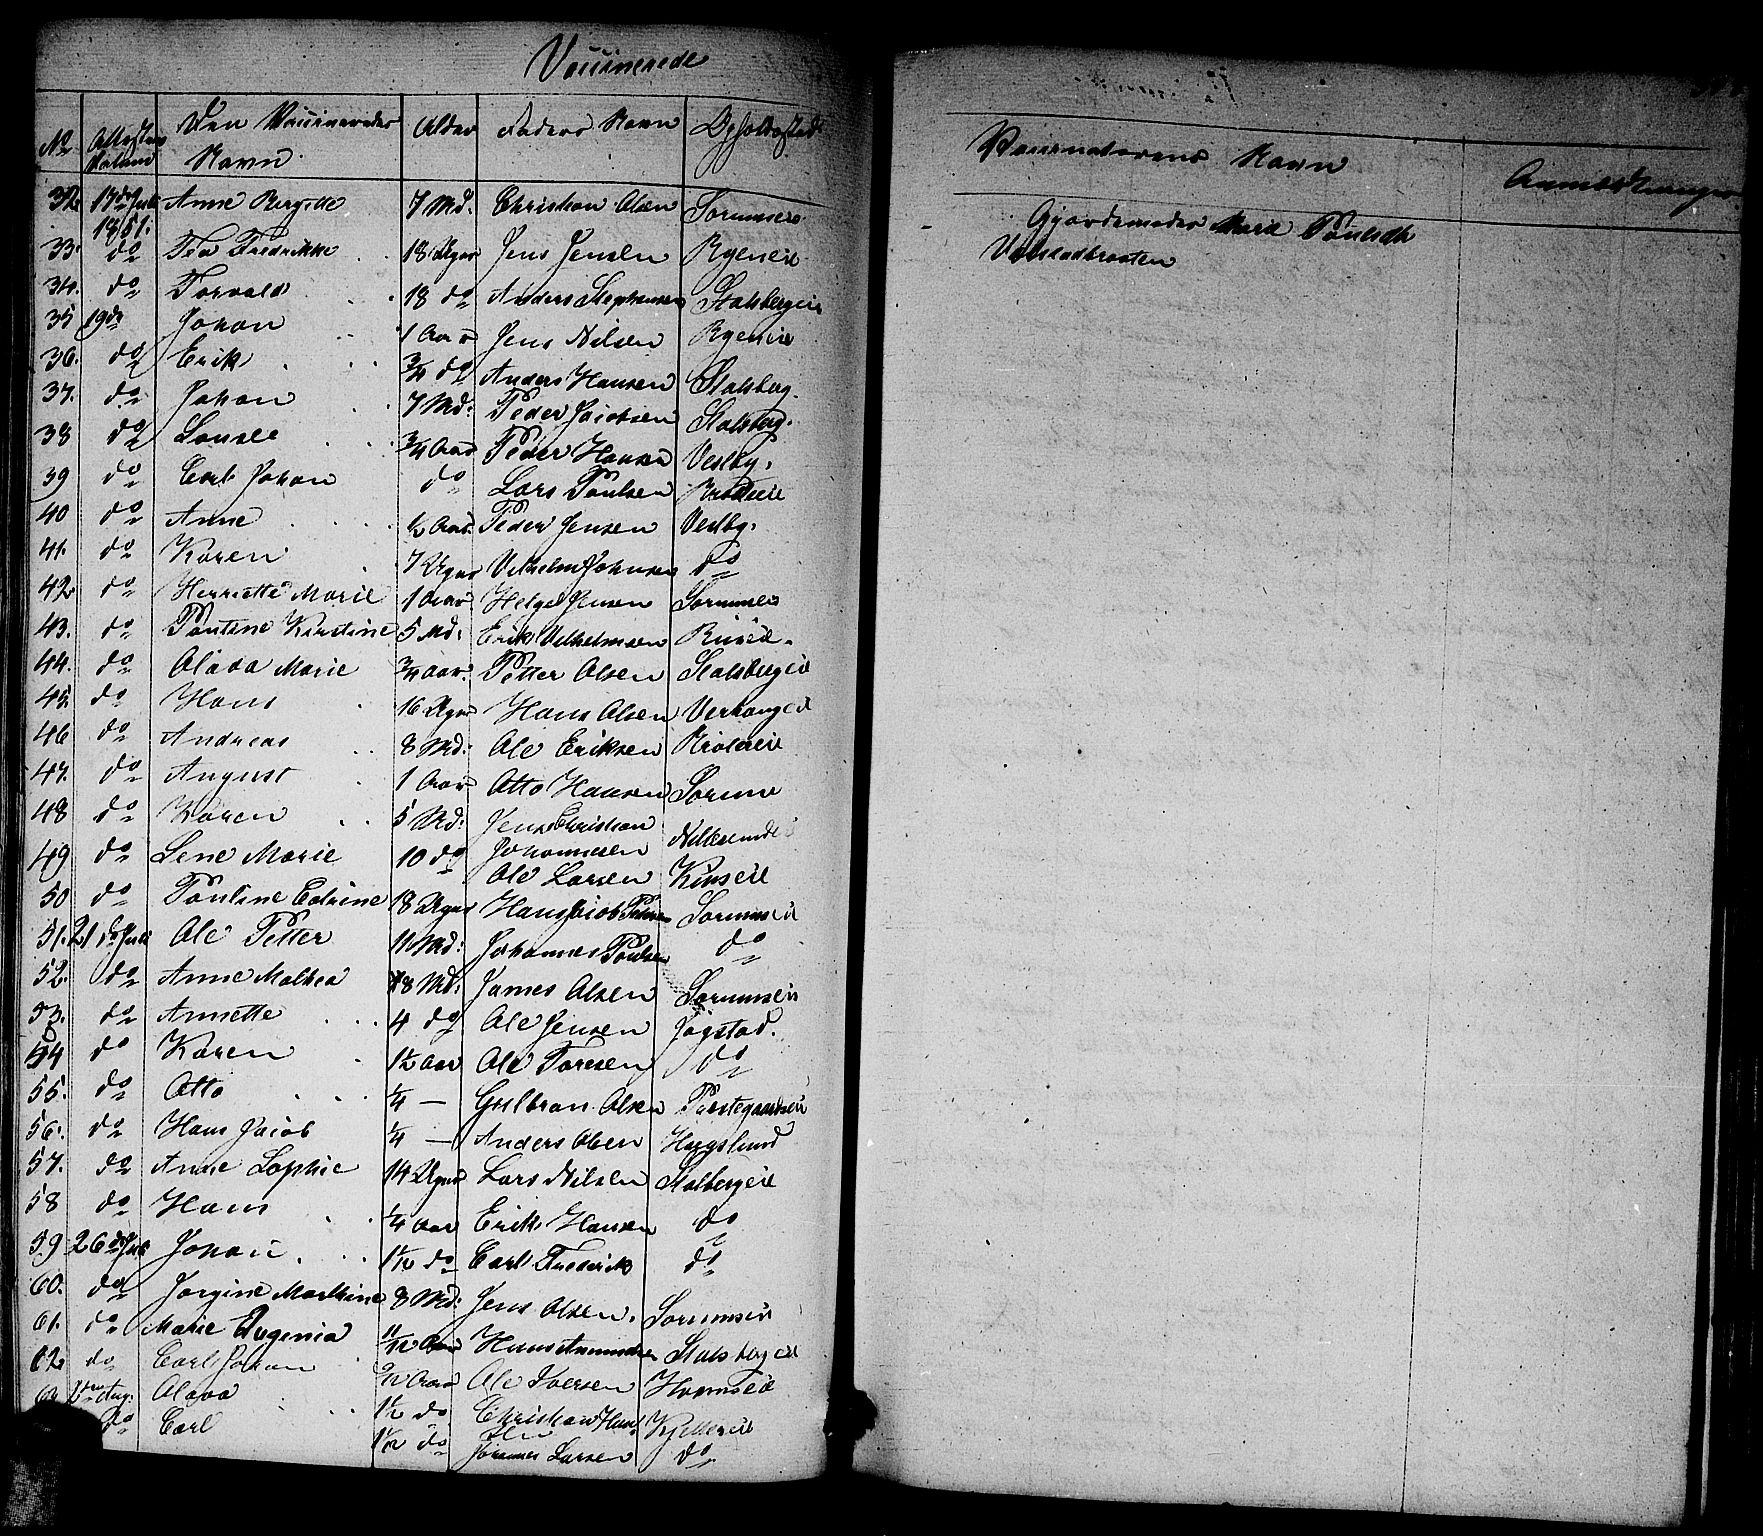 Vaccinerede
No Attestens Datum Den Vaccineredes Navn Alder Faders Navn Opholdssted
32 17de Juli 1861. Anne Birgitte 7 Md. Christian Olsen Sørumseie
33. do Fredrikke 18 Uger Jens Jensen Ryeneie
34. do Torvald 18 do Anders Stephensen Stalsbergeie
35 19de Johan 1 Aar Jens Nilsen Ryeneie
36. do Erik 3/4 do Anders Hansen Stalsberg.
37. do Johan 7 Md: Peder Jacobsen Stalsberg.
38 do Lousee 3/4 Aar Peder Hansen Vestby.
39 do Carl Johan do Lars Poulsen
40 do Anne 1/2 Aar. Peder Jensen Vestby.
41. do Karen 7 Uger Vilhelm Johnsen do
42 do Henriette Marie 1 Aar Helge Jensen Sørumseie
43. do Pouline Kirstine 5 Md: Erik Vilhelmsen
44. do Olava Marie 3/4 Aar. Petter Olsen Stalsbergeie
45 do Hans 16 Uger Hans Olsen
46 do Andreas 8 Md: Ole Eriksen
47. do August 1 Aar Otto Hansen Sørum
48 do Karen 5 Md: Jens Christian Johannesen
49 do Lene Marie 10 do Ole Larsen
50 do Pouline Edvine 18 Uger Hans Jacob Sørumseie
51. 21de Juli Ole Petter 11 Md: Johannes Poulsen do
52. do Anne Mathea 8 Md: James Olsen Sørumseie
53. do Annette 4 do Ole Jensen Jogstad.
54 do Karen 1 1/2 Aar Ole Toresen do
55. do Otto 1/4 — Gulbran Olsen
56. do Hans Jacob 1/4 — Anders Olsen Haagslund
57. do Anne Sophie 14 Uger Lars Nilsen Stalbergeie
58 do Hans 1/4 Aar Erik Hansen do
59 26de Juli Johan 1 1/2 do Carl Frederik do
60. do Jorgine Mathine 8 Md: Jens Olsen. Sørumseie
61. do Marie Eugenia 11/12 Aar Hans Amundsen Stalsbergeie
62 do Carl Johan 9/12 Aar Ole Iversen
Aug: Olava 1 1/2 do Christian Hans
do Carl 1 1/2 do Johannes Larsen do
Vaccinatorens Navn Anmærkninger
Gjordemoder Marie Poulsdt
Volstadbraaten